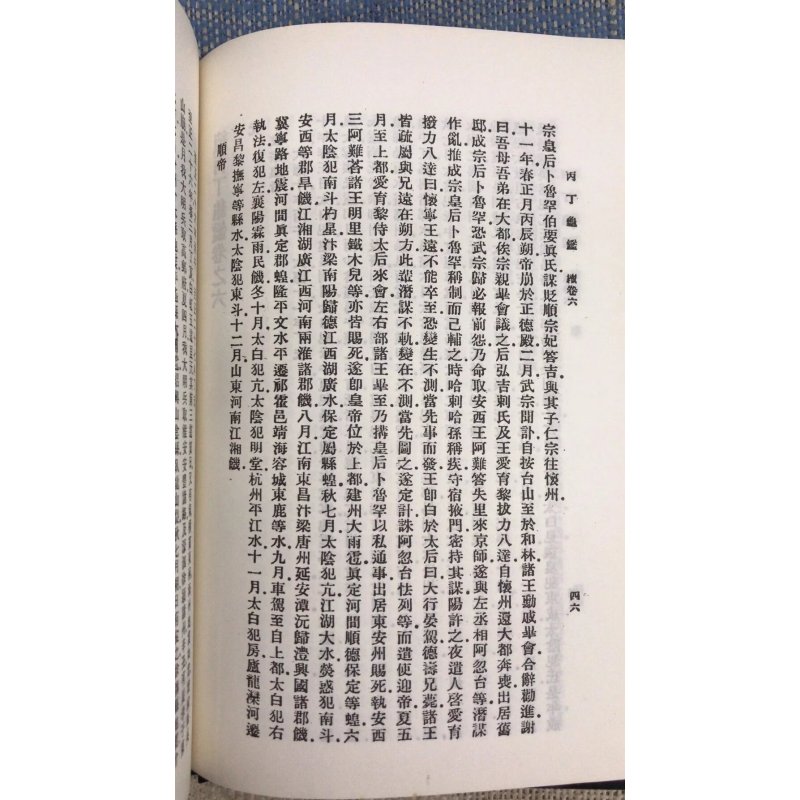 丙丁龜鑑 續卷六 四六
宗皇后卜魯罕伯要眞氏謀貶順宗妃答吉與其子仁宗往懷州
十一年春正月丙辰朔帝崩於正德殿二月武宗聞訃自按台山至於和林諸王勳戚畢會合辭勸進謝
曰吾母吾弟在大都俟宗親畢會議之后弘吉剌氏及王愛育黎拔力八達自懷州還大都奔喪出居舊
邸成宗后卜魯罕恐武宗歸必報前怨乃命取安西王阿難答失里來京師遂與左丞相阿忽台等潛謀
作亂推成宗皇后卜魯罕稱制而己輔之時哈剌哈孫稱疾守宿掖門密持其謀陽許之夜遣人啓愛育
撥力八達曰懷寧王遠不能卒至恐變生不測當先事而發王卽白於太后曰大行晏駕德壽兄薨諸王
皆疏屬與兄遠在朔方此輩潛謀不軌變在不測當先圖之遂定計誅阿忽台怯列等而遣使迎帝夏五
月至上都愛育黎侍太后來會左右部諸王畢至乃搆皇后卜魯罕以私通事出居東安州賜死執安西
三阿難荅諸王明里鐵木兒等亦皆賜死遂卽皇帝位於上都建州大雨雹眞定河間順德保定等蝗六
月太陰犯南斗杓星汴梁南陽歸德江西湖廣水保定屬縣蝗秋七月太陰犯亢江湖大水熒惑犯南斗
安西等郡旱饑江湘湖廣江西河南兩淮諸郡饑八月江南東昌汴梁唐州延安潭沅歸澧興國諸郡饑
冀寧路地震河間眞定郡蝗隆平文水平遙祁霍邑靖海容城東鹿等水九月車駕至自上都太白犯右
執法復犯左襄陽霖雨民饑冬十月太白犯亢太陰犯明堂杭州平江水十一月太白犯房盧龍灤河遷
安昌黎撫寧等縣水太陰犯東斗十二月山東河南江湘饑
順帝